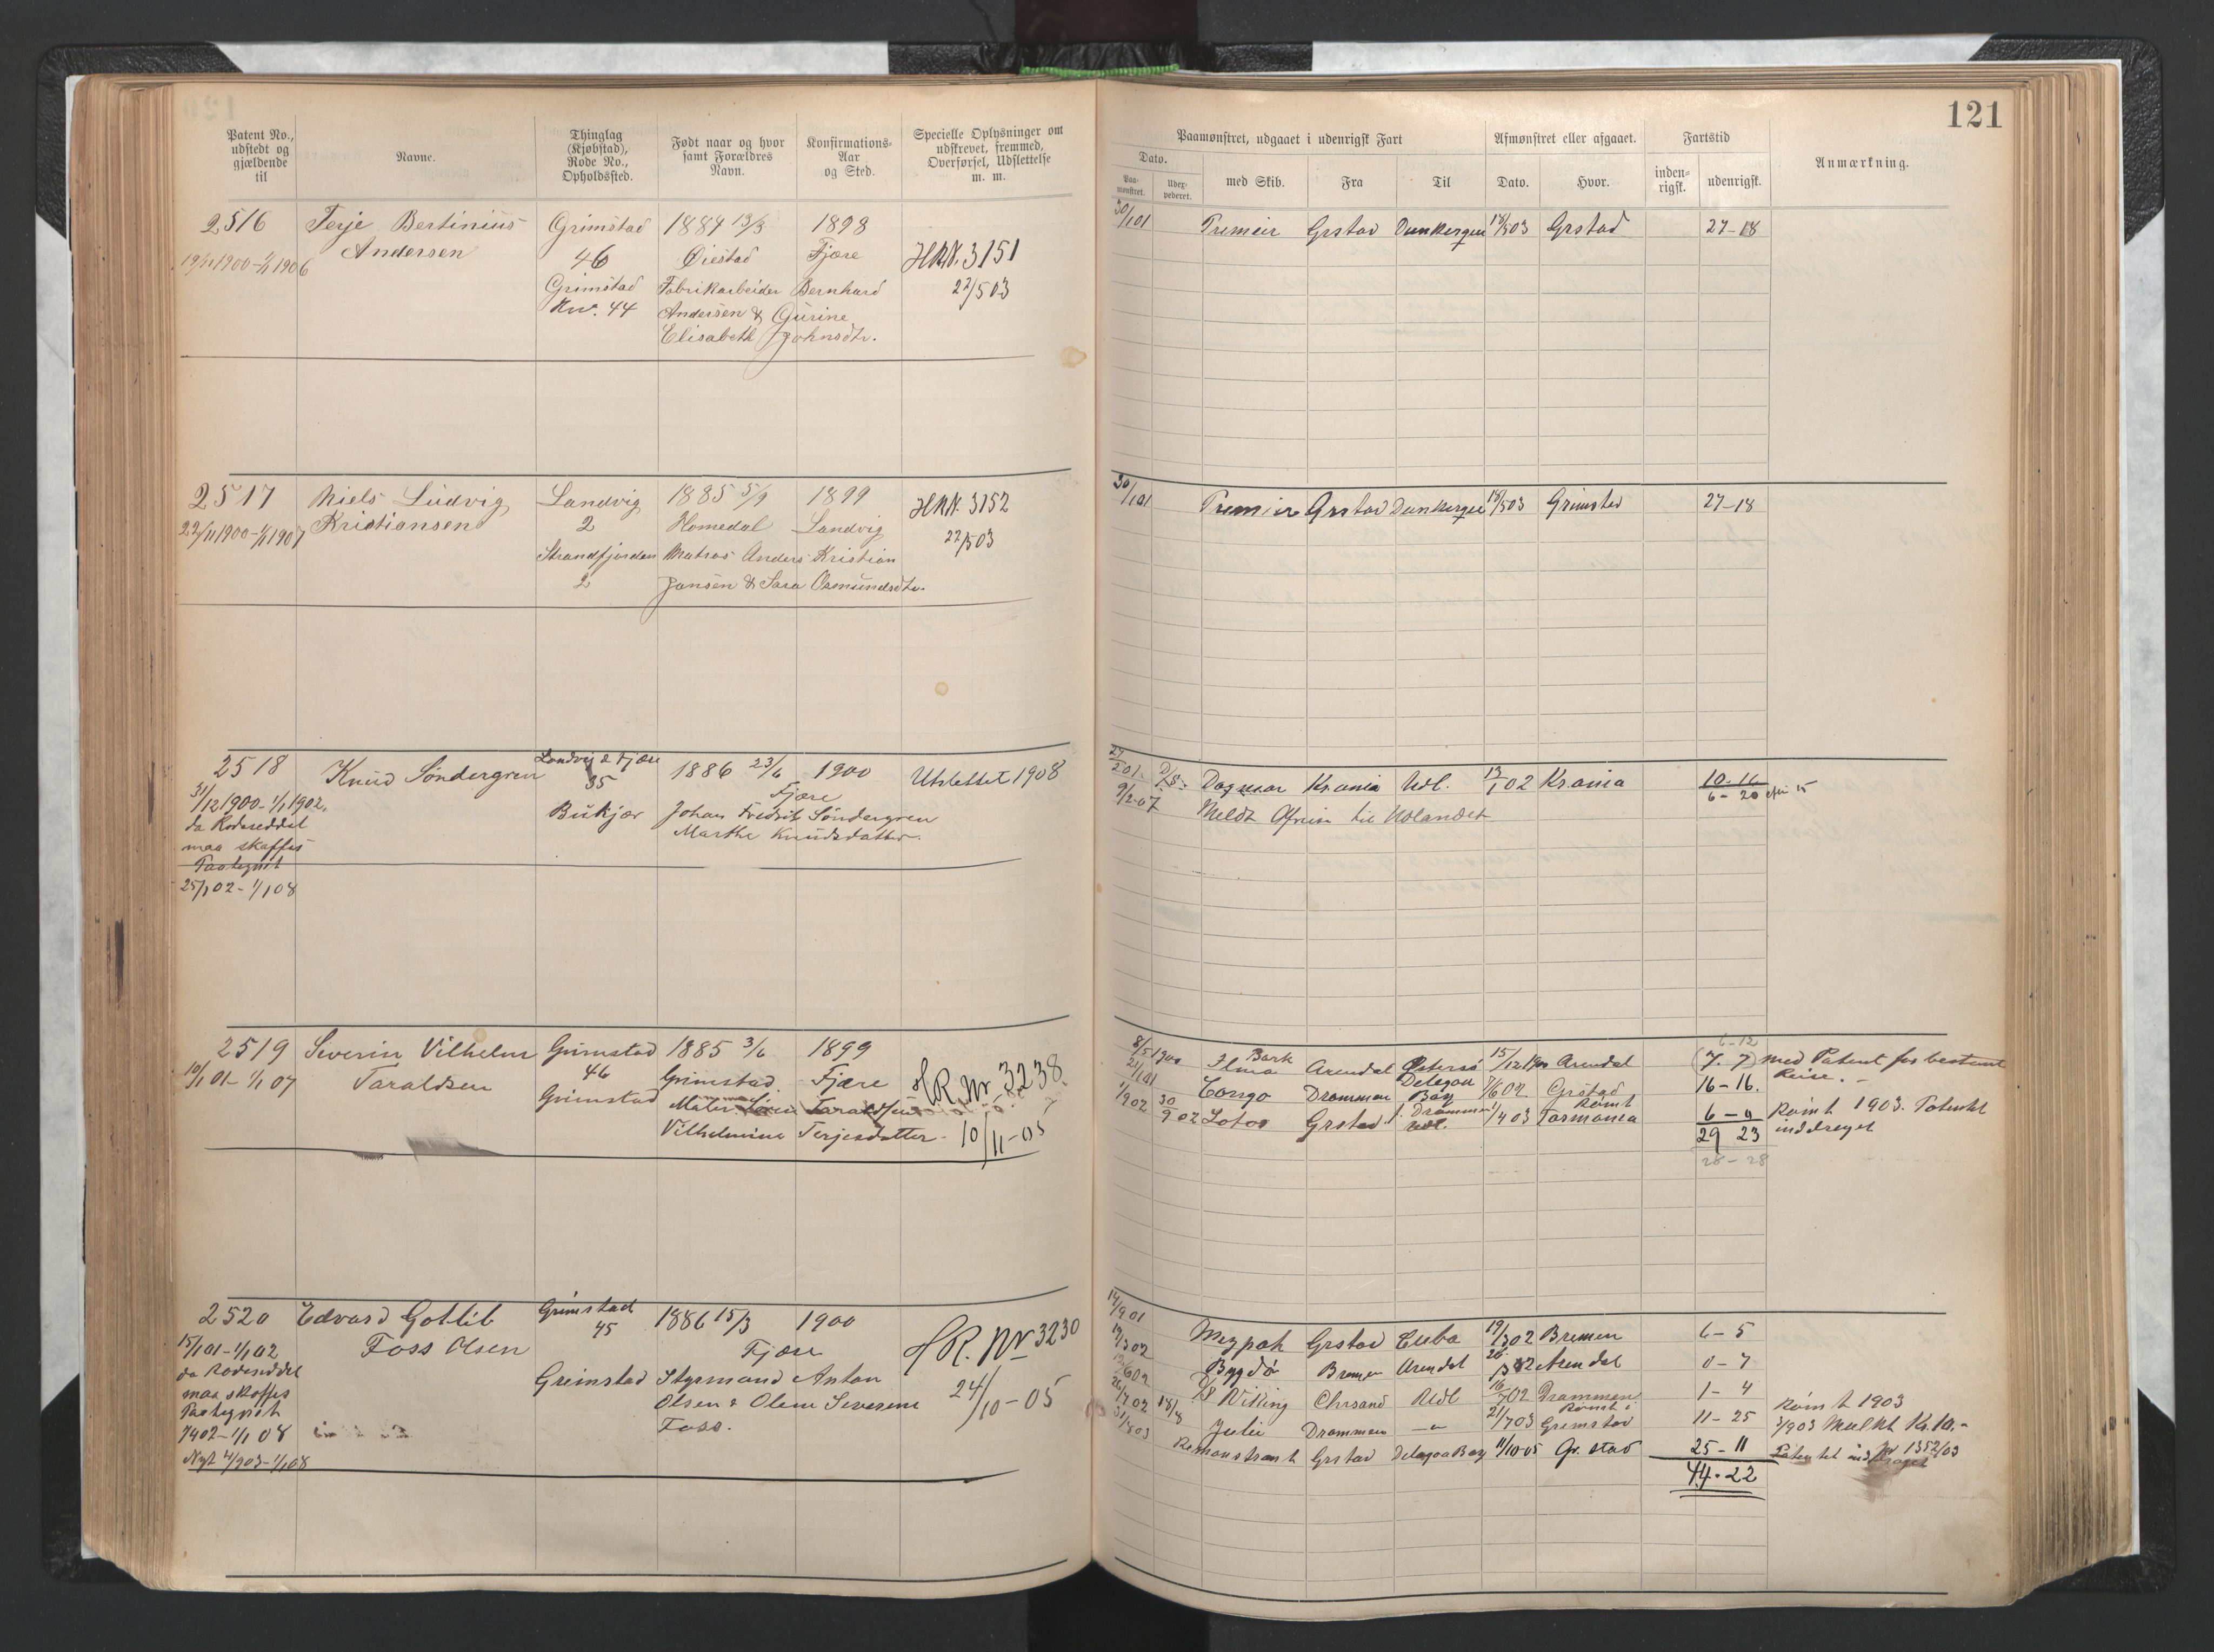 121
Patent No., udstedt og gjældende til
Navne.
Thinglag (Kjøbstad), Rode No., Opholdssted.
Født naar og hvor samt Forældres Navn.
Konfirmations-Aar og Sted.
Specielle Oplysninger om udskrevet, fremmed, Overførsel, Udslettelse m. m.
Paamønstret, udgaaet i udenrigsk Fart
Afmønstret eller afgaaet.
Fartstid
Anmærkning.
Dato.
Paa-mønstret.
Udex-pederet.
med Skib.
Fra
Til
Dato.
Hvor.
inden-rigsk.
udenrigsk.
2516 Terje Bertinius Grimstad 1884 13/3 1898
19/11 1900 - 1/1 1906 Andersen 46 Øiestad Fjære HRN. 3151
Grimstad Fabrikarbeider Bernhard 22/5 03
Nr. 44 Andersen & Gurine
Elisabeth Johnsdtr.
30/1 01 Premier Grstad Dunkerque 18/5 03 Grstad 27-18
2517 Niels Ludvig Landvig 1885 5/9 1899 HRN. 3152
22/11 1900 - 1/1 1907 Kristiansen 2 Homedal Landvig 22/5 03
Strandfjorden Matros Anders Kristian
2 Jansen & Sara Osmundsdtr.
30/1 01 Premier Grstad Dunkerque 18/5 03 Grimstad 27-18
2518 Knud Søndergren Landvig & Fjære 1886 23/6 1900 Utslettet 1908
31/12 1900 - 1/1 1902, 35 Fjære
da Rodeseddel Bukjær Johan Fredrik Søndergren
maa skaffes Marthe Knudsdatter.
Paategnet
25/1 02 - 1/1 08
Dagmar Krania Udl. 13/1 02 Krania 10-16
9/2-07 Meldt Afreise til Udlandet 6-20
2519 Severin Vilhelm Grimstad 1885 3/6 1899
10/1 01 - 1/1 07 Taraldsen 46 Grimstad. Fjære HR. Nr 3238
Grimstad Taraldsen
Vilhelmine Terjesdatter. 10/11-05
6-12
8/5 1900 Bark Ilma Arendal 15/12 1900 Arendal (7-7) Med Patent for bestemt Reise. -
2/1 01 Congo Drammen Delagoa Bay 7/6 02 Grstad 16-16.
1/9 02 30/9 02 Lotos Grstad f. Drammen Udl. 1/4 03 Rømt Tasmania 6-0 Rømt 1903. Patentet inddraget
29 23
28-28
2520 Edvard Gotlib Grimstad 1886 15/3 1900
15/1 01 - 1/1 02 Foss Olsen 45 Fjære HR. Nr 3230
da Rodeseddel Grimstad Styrmand Anton 24/10-05
maa skaffes Olsen & Olene Severine
Paategnet Foss.
7/4 02 - 1/1 08
Nyt 4/9 03 - 1/1 08
14/9 01 Mezpah Grstad Cuba 19/3 02 Bremen 6-5
19/3 02 Bygdø Bremen Arendal Arendal 0-7
Viking Chrsand Udl 16/7 02 Drammen 1-4
26/7 02 18/8 Julie Drammen 21/7 03 Rømt i Grimstad 11-25 Rømt 1903
31/8 03 Remonstrant Grstad Delagoa Bay 11/10-05 Gr. stad 25-11 Mulkt Kr. 10.-
Patentet inddraget Nr 1352/03
44-22